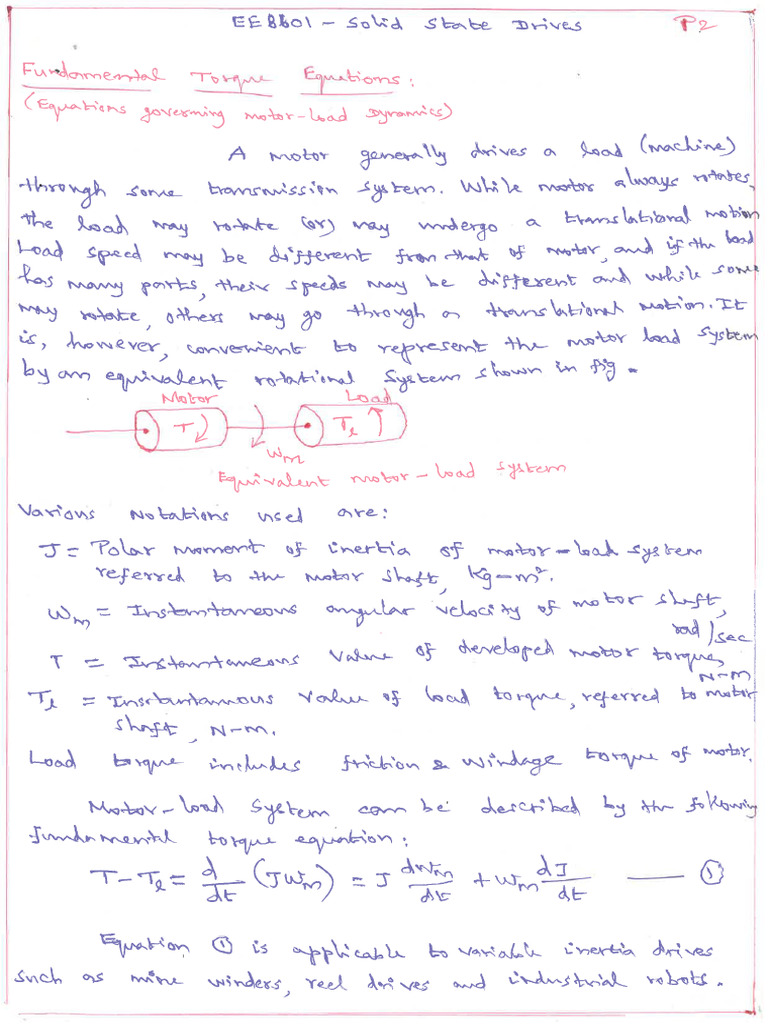 EE8601 – Solid State Drives P2
Fundamental Torque Equations:
(Equations governing motor-load Dynamics)
A motor generally drives a load (machine)
through some transmission system. While motor always rotates,
the load may rotate (or) may undergo a translational motion
Load speed may be different from that of motor, and if the load
has many parts, their speeds may be different and while some
may rotate, others may go through a translational motion. It
is, however, convenient to represent the motor load system
by an equivalent rotational system shown in fig.
Motor Load
T Tl
ωm
Equivalent motor-load system
Various Notations used are:
J = Polar moment of inertia of motor-load system
referred to the motor shaft, Kg-m².
ωm = Instantaneous angular velocity of motor shaft,
rad/sec
T = Instantaneous value of developed motor torque,
N-m
Tl = Instantaneous value of load torque, referred to motor
shaft, N-m.
Load torque includes friction & windage torque of motor.
Motor-load system can be described by the following
fundamental torque equation:
T - Tl = d/dt (Jωm) = J dωm/dt + ωm dJ/dt —— ①
Equation ① is applicable to variable inertia drives
such as mine winders, reel drives and industrial robots.